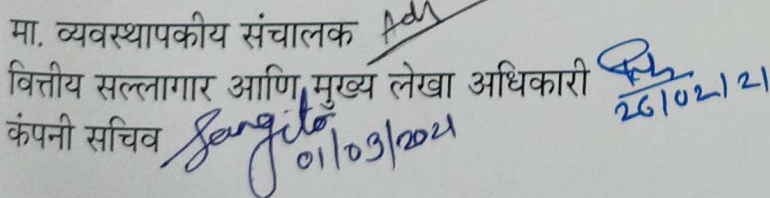 मा. व्यवस्थापकीय संचालक
वित्तीय सल्लागार आणि मुख्य लेखा अधिकारी
26/02/21
कंपनी सचिव Sangita
01/03/2021